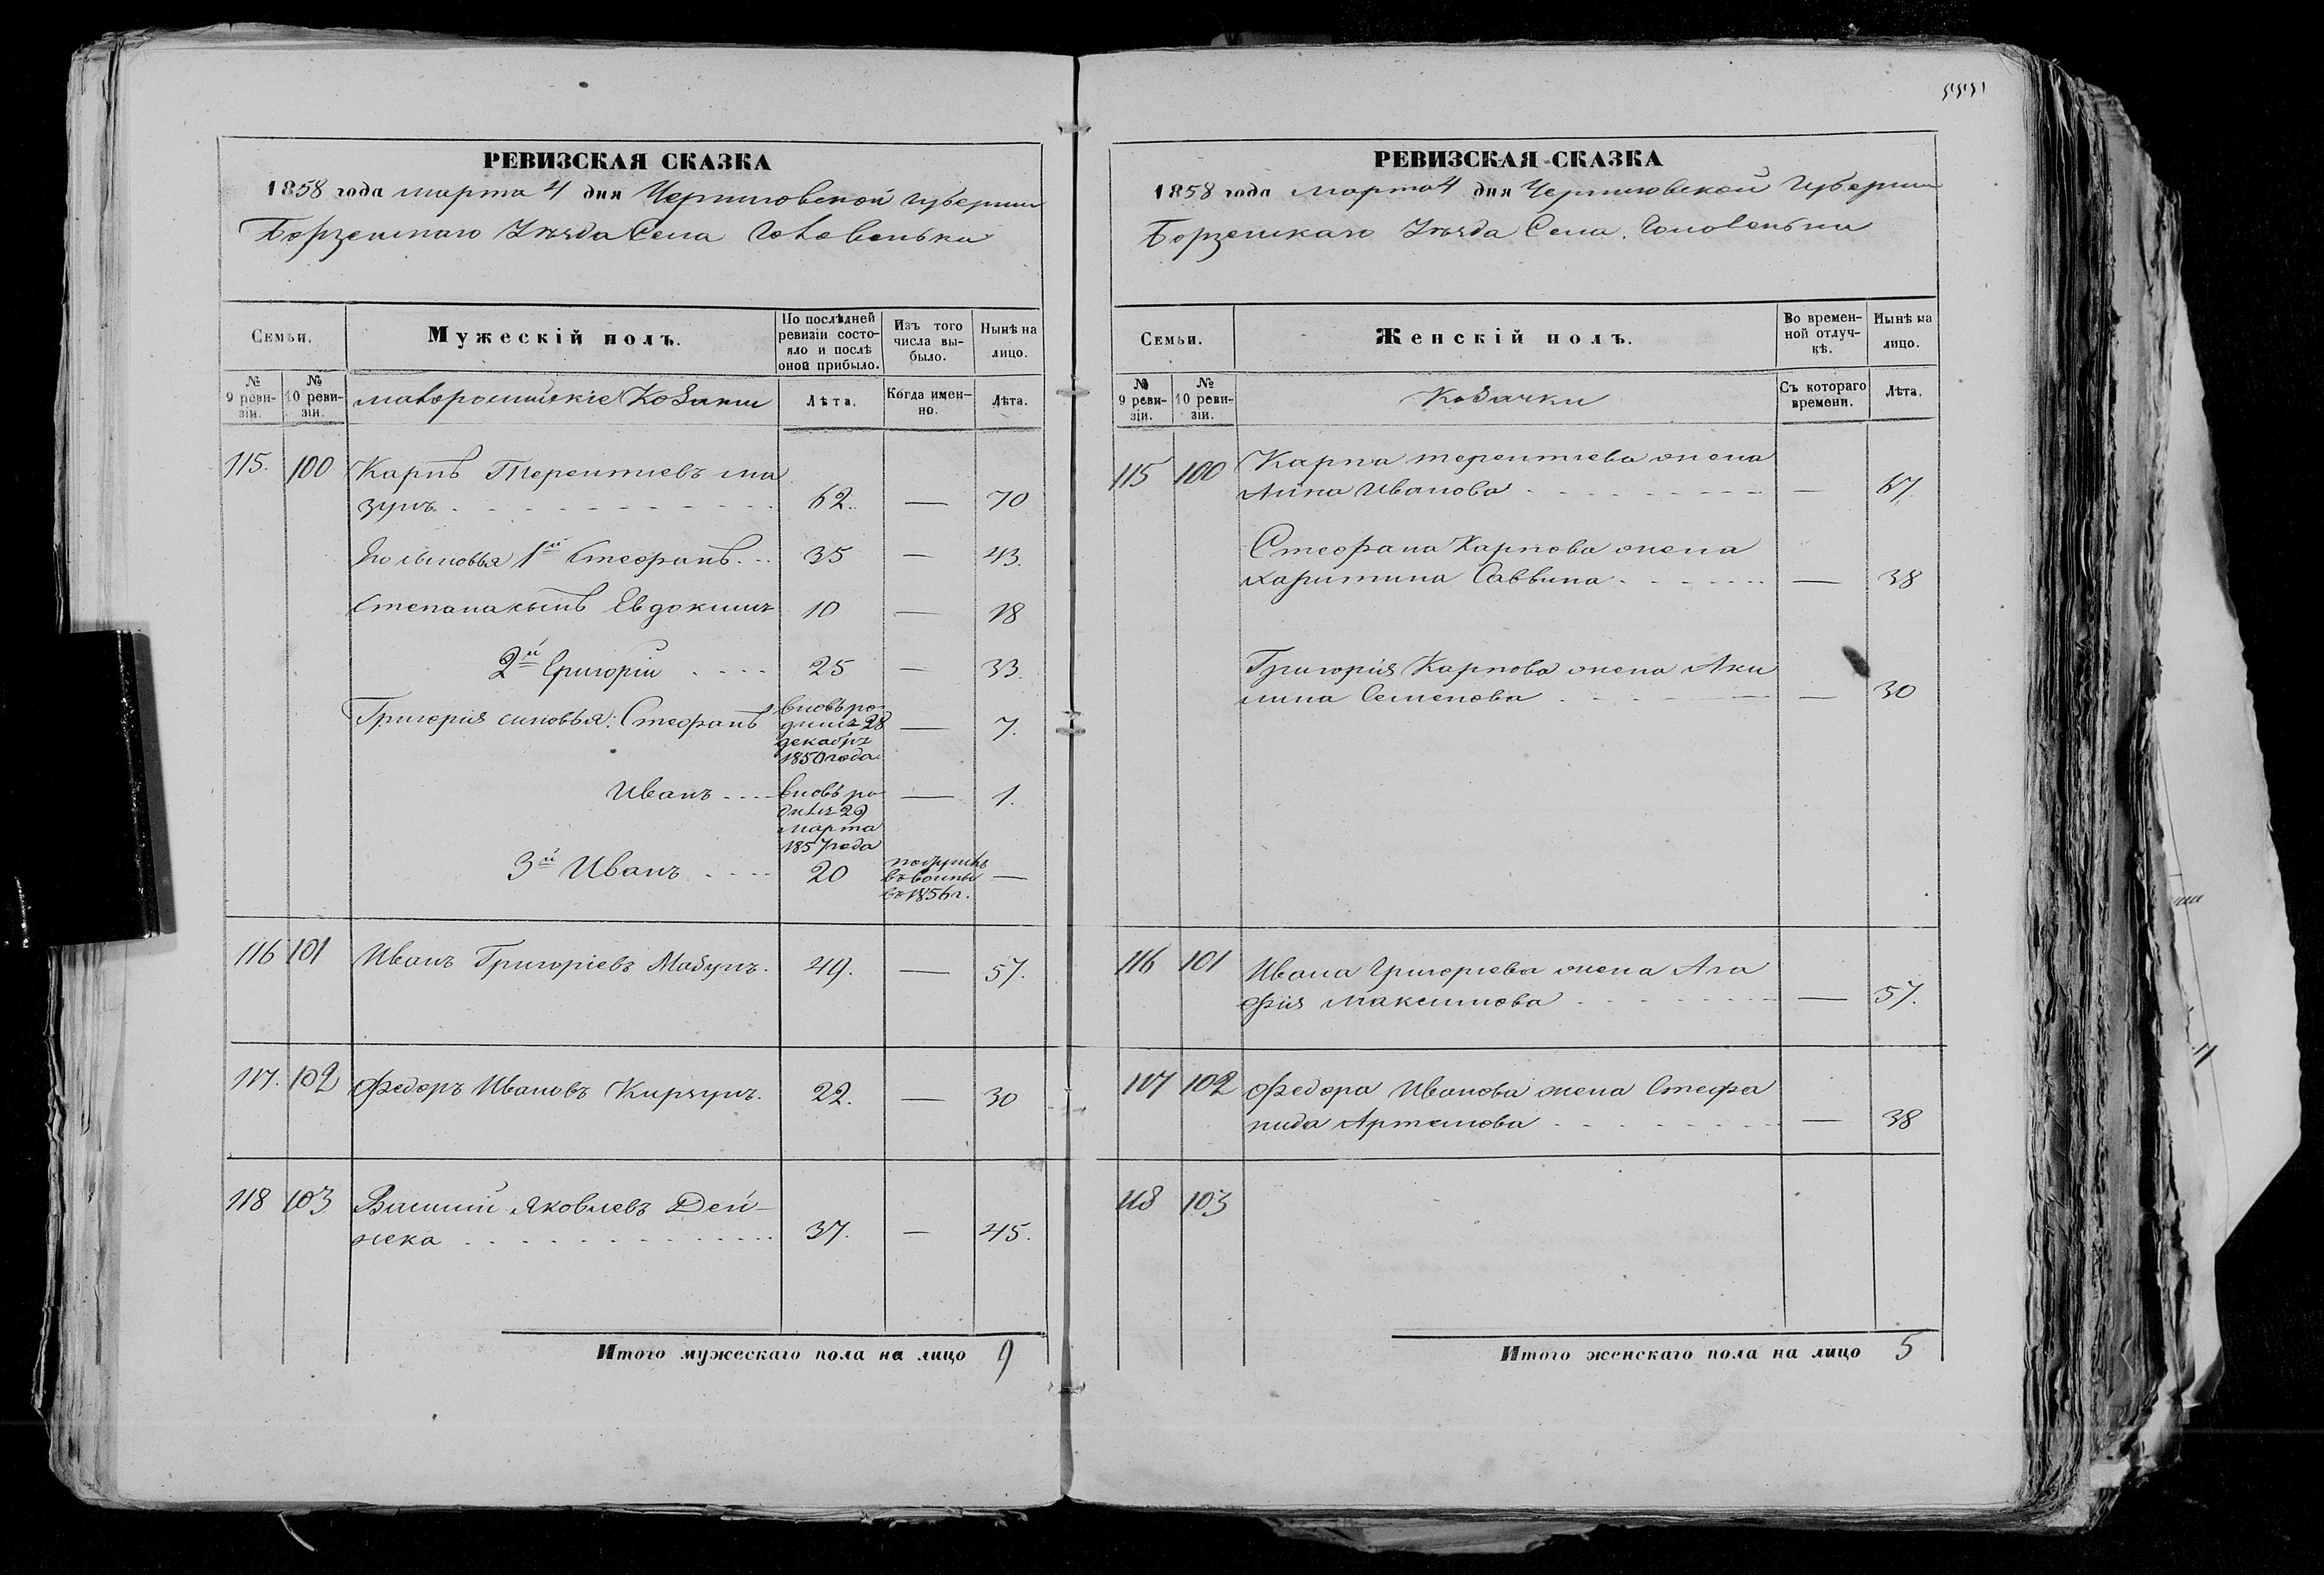 РЕВИЗСКАЯ СКАЗКА
1858 года марта 4 дня Черниговской губернии
Борзенскаго Уѣзда Села Головеньки
Семьи.
Мужескій полъ.
По послѣдней ревизіи состояло и послѣ оной прибыло.
Изъ того числа выбыло.
Нынѣ на лицо.
№ 9 ревизіи.
№ 10 ревизіи.
малороссійскіе Козаки
Лѣта.
Когда именно.
Лѣта.
115. 100 Карпъ Терентиевъ ма
зунъ 62. — 70
1й Стефанъ 35 — 43.
Степана сынъ Евдокимъ 10 — 18
2й Григорій 25 — 33.
Григорія синовья: Стефанъ
вновь ро
дился 28
декабря
1850 года
— 7.
Иванъ
вновь ро
дился 29
марта
1857 года
— 1.
3й Иванъ 20
въ 1856 г.
—
116 101 Иванъ Григоріевъ Мазунъ. 49. — 57.
117. 102 Федоръ Ивановъ Кирчунъ. 22. — 30
118 103 Василій Яковлевъ Дей-
нека 37. — 45.
Итого мужескаго пола на лицо 9
РЕВИЗСКАЯ СКАЗКА
1858 года Марта 4 дня Черниговской Губернии
Борзенскаго Уѣзда Села Головеньки
Семьи.
Женскій полъ.
Во временной отлучкѣ.
Нынѣ на лицо.
№ 9 ревизіи.
№ 10 ревизіи.
Козачки
Съ котораго времени.
Лѣта.
115 100 Карпа терентиева жена
Анна Иванова — 67.
Стефана Карпова жена
харитина Саввина — 38
Григорія Карпова жена Аки
лина Семенова — 30
116 101 Ивана Григориева жена Ага
фія Максимова — 57.
117 102 Федора Иванова жена Стефа
нида Артемова — 38
118 103
Итого женскаго пола на лицо 5